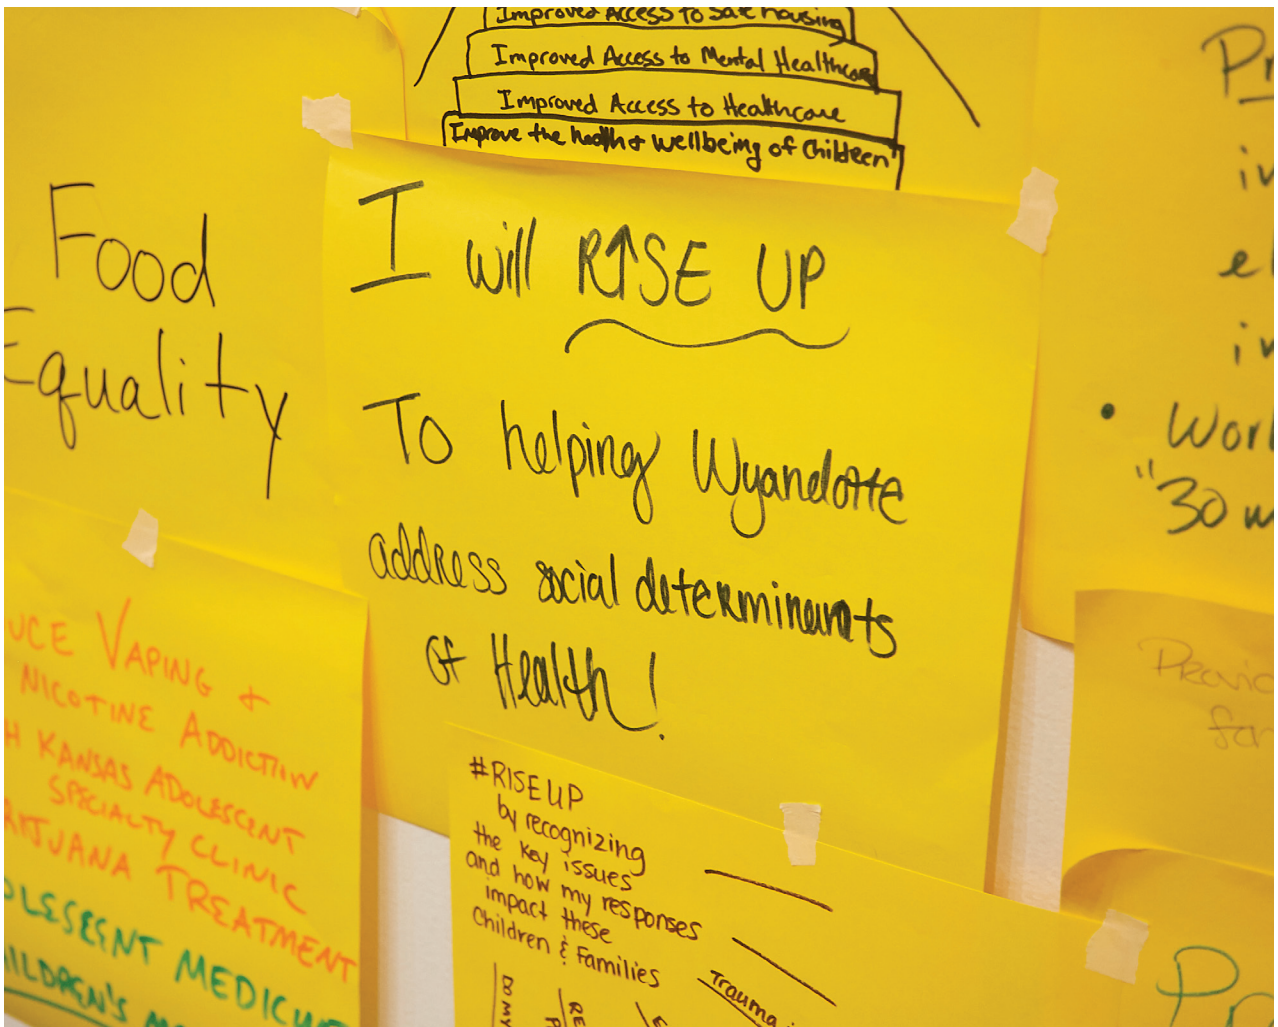 Improved Access to Safe housing
Improved Access to Mental Healthcare
Improved Access to Healthcare
Improve the health & wellbeing of Children
Food
Equality
I will RISE UP
To helping Wyandotte
address social determinants
of Health!
• Work
"30 m
UCE VAPING +
NICOTINE ADDICTION
H KANSAS ADOLESCENT
SPECIALTY CLINIC
TREATMENT
OLESCENT MEDICINE
CHILDREN'S
#RISEUP
by recognizing
the key issues
and how my responses
impact these
Children & Families
Trauma
Provid
for